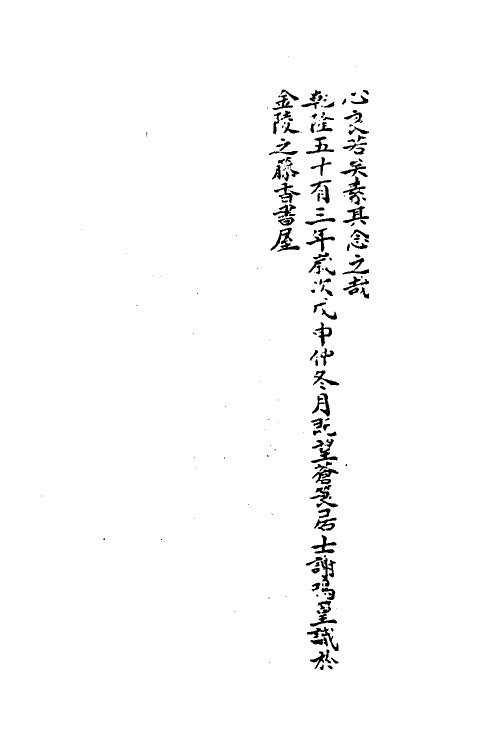 心良若矣素其念之哉
乾隆五十有三年歲次戊申仲冬月既望蒼筤居士謝鳴篁識於
金陵之籐香書屋